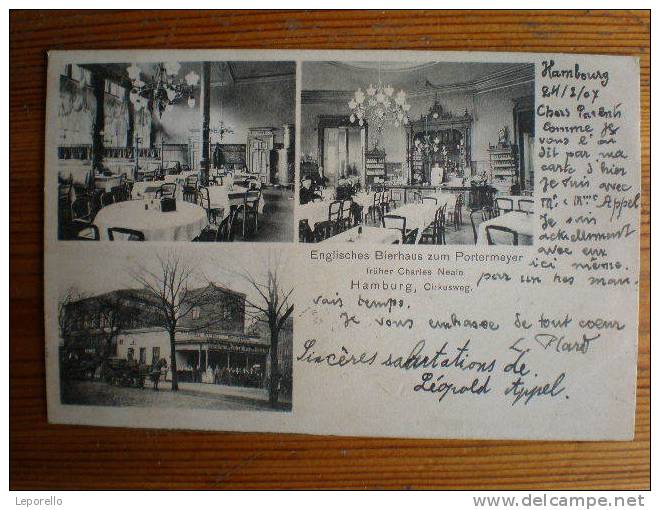 Hambourg
24/2/07
Chers Parents
Comme je
vous l'ai
dit par ma
carte d'hier
Je suis avec
Mr & Mme Appel
Je suis
actuellement
avec eux
ici même.
par un tres mau-
vais temps.
Je vous embrasse de tout coeur
Sincères salutations de
Léopold Appel.
Englisches Bierhaus zum Portermeyer
früher Charles Neale
Hamburg, Cirkusweg.
Leporello
http://www.delcampe.net